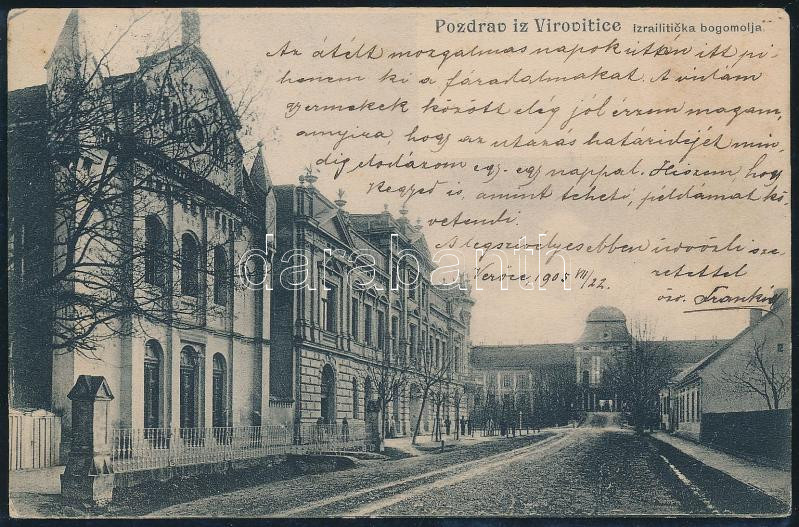 Pozdrav iz Virovitice Izrailitička bogomolja.
Az átélt mozgalmas napok után itt pi-
henem ki a fáradalmakat. A vidám
gyermekek között elég jól érzem magam,
annyira, hogy az utazás határidejét min-
dig elodázom egy-egy nappal. Hiszem, hogy
Kegyed is, amint teheti, példámat kö-
vetendi.
A legszívélyesebben üdvözli sze-
retettel
Verőce, 1905 VII/22.
özv.
darabanth